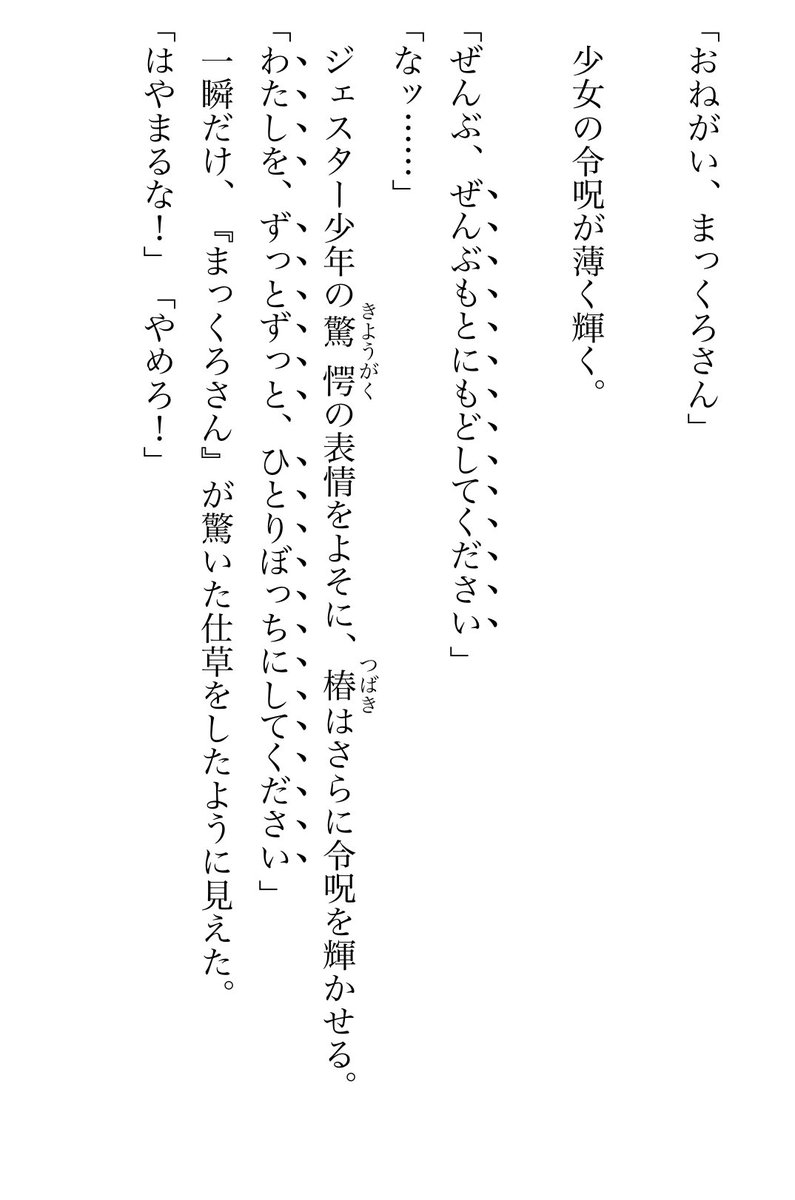 「おねがい、まっくろさん」
少女の令呪が薄く輝く。
「ぜんぶ、ぜんぶもとにもどしてください」
「なッ……」
ジェスター少年の驚愕の表情をよそに、椿はさらに令呪を輝かせる。
きようがく
つばき
「わたしを、ずっとずっと、ひとりぼっちにしてください」
一瞬だけ、『まっくろさん』が驚いた仕草をしたように見えた。
「はやまるな！」「やめろ！」